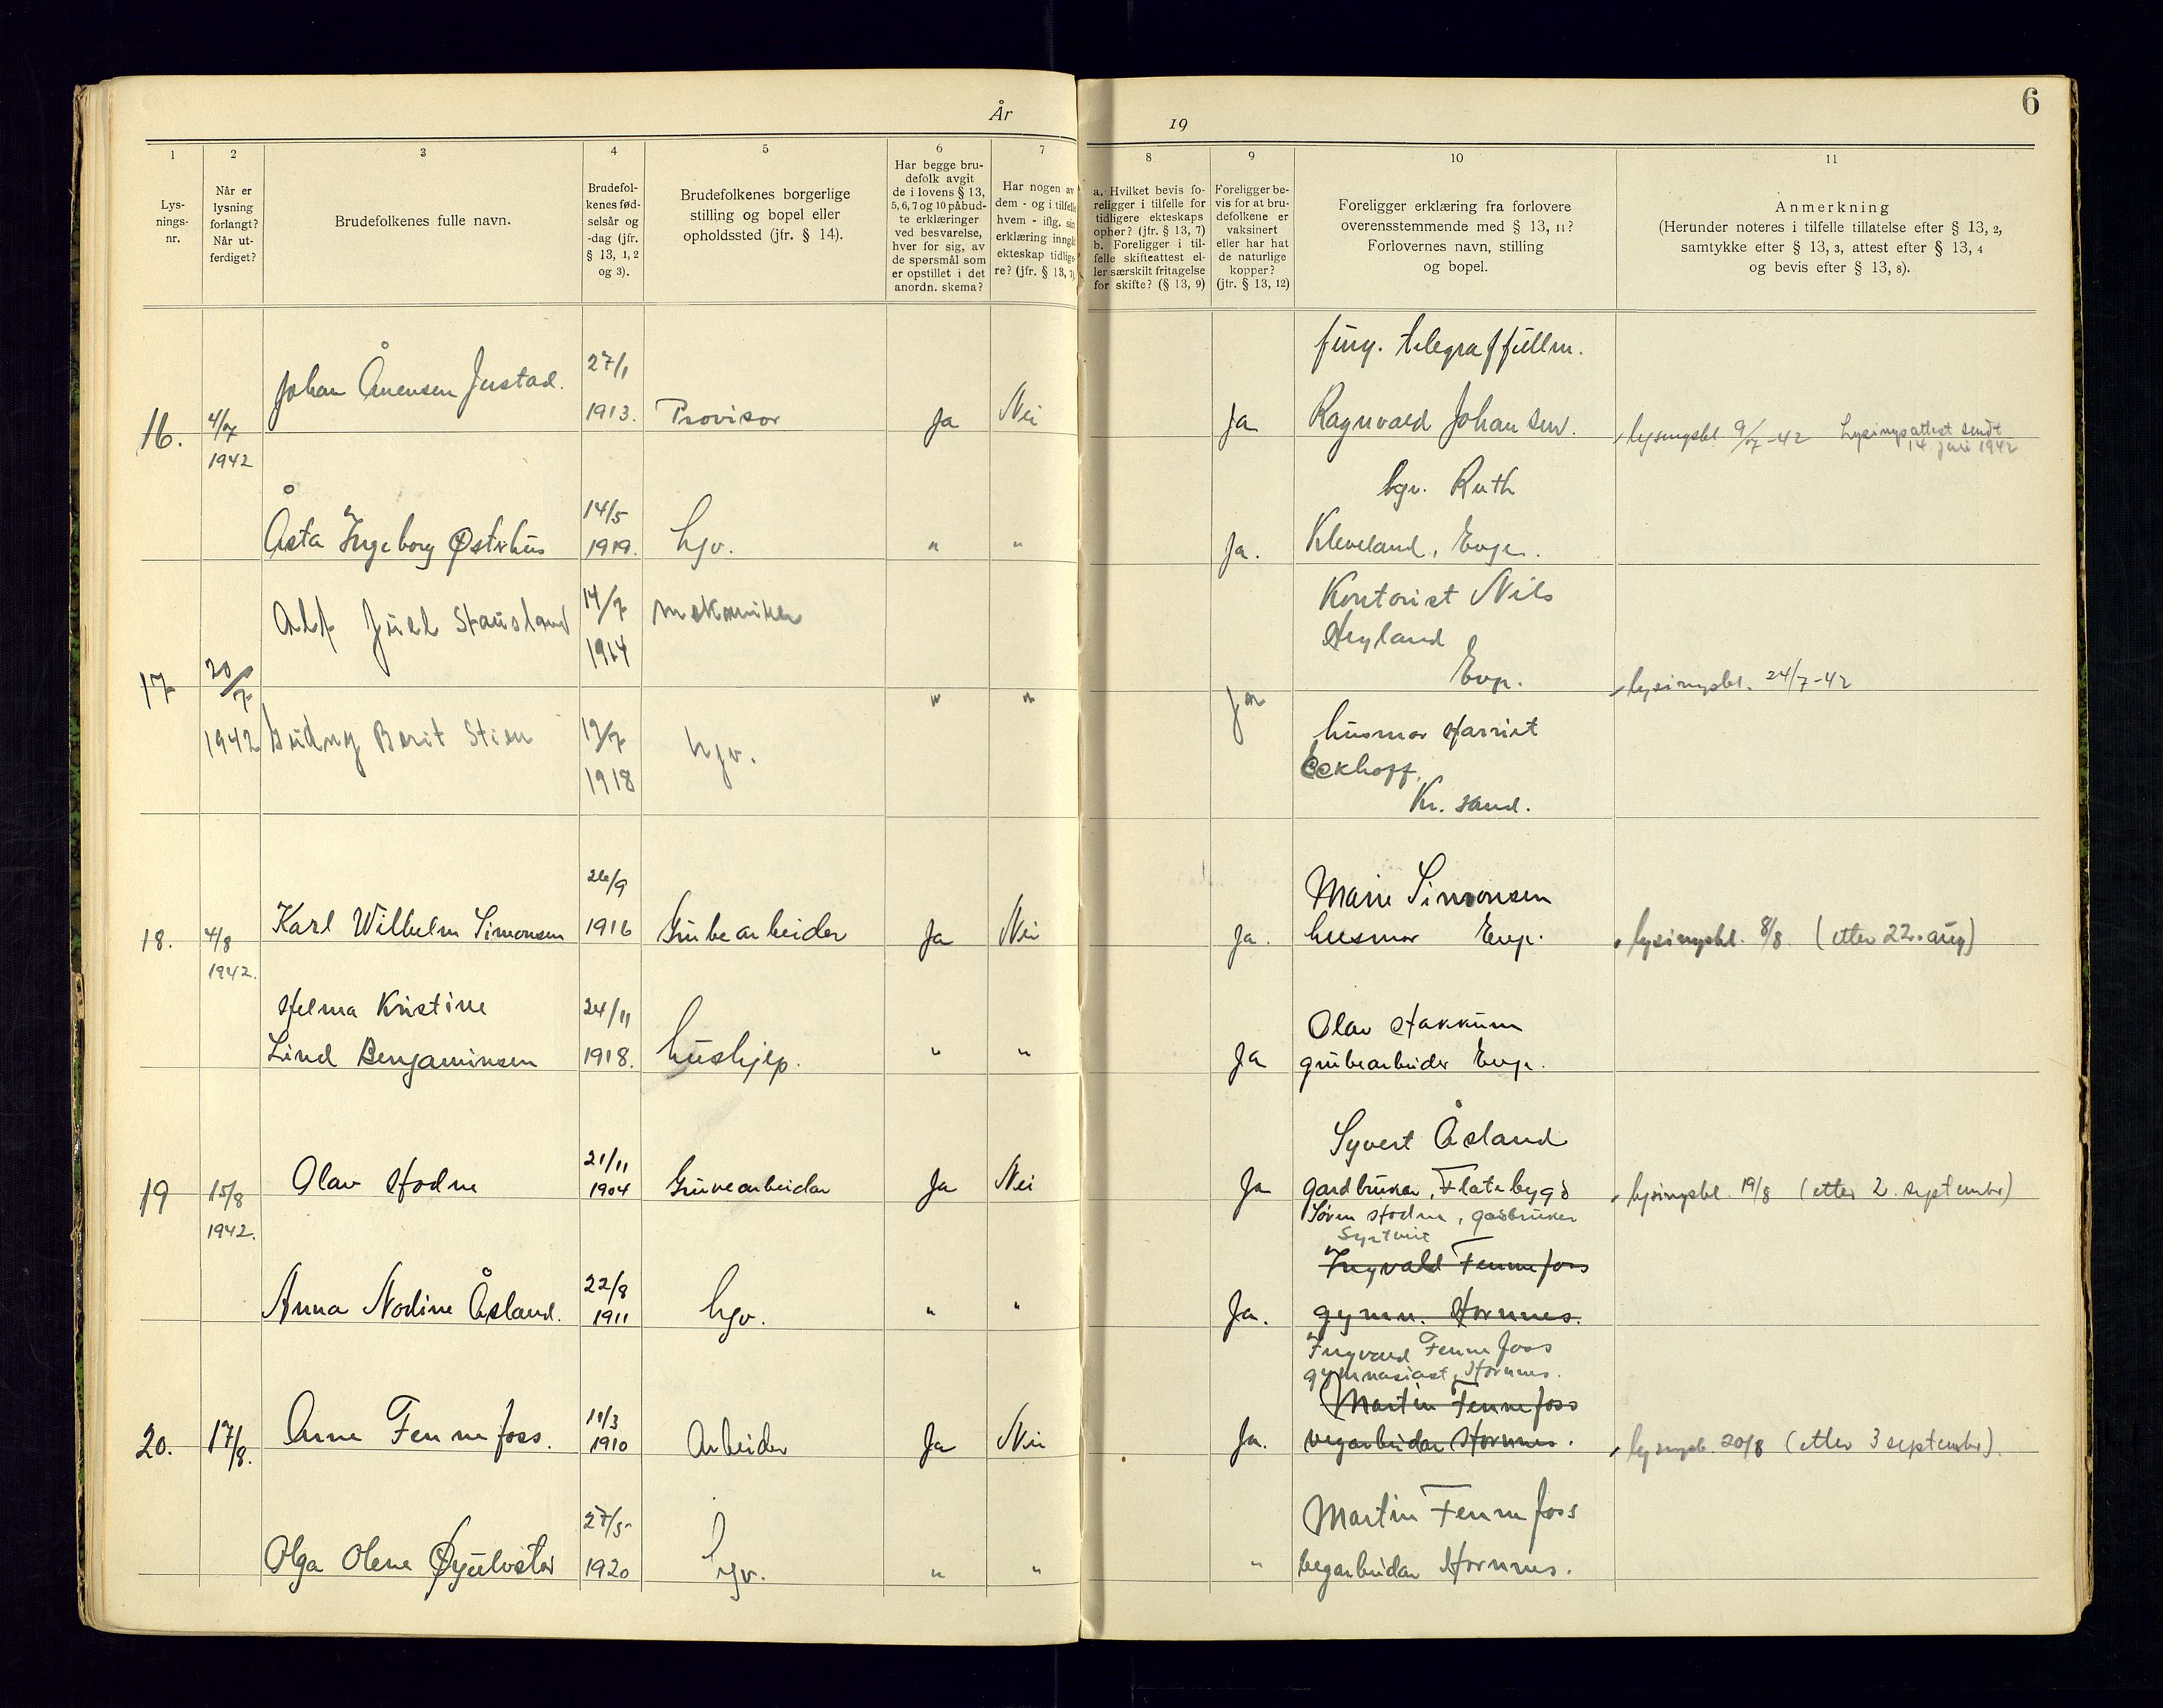 År
19
6
1
Lys-
nings-
nr.
2
Når er
lysning
forlangt?
Når ut-
ferdiget?
3
Brudefolkenes fulle navn.
4
Brudefol-
kenes fød-
selsår og
-dag (jfr.
§ 13, 1, 2
og 3).
5
Brudefolkenes borgerlige
stilling og bopel eller
opholdssted (jfr. § 14).
6
Har begge bru-
defolk avgit
de i lovens § 13,
5, 6, 7 og 10 påbud-
te erklæringer
ved besvarelse,
hver for sig, av
de spørsmål som
er opstillet i det
anordn. skema?
7
Har nogen av
dem - og i tilfelle
hvem - iflg. sin
erklæring inngå
ekteskap tidlige-
re? (jfr. § 13, 7)
8
a. Hvilket bevis fo-
religger i tilfelle for
tidligere ekteskaps
ophør? (jfr. § 13, 7)
b. Foreligger i til-
felle skifteattest el-
ler særskilt fritagelse
for skifte? (§ 13, 9)
9
Foreligger be-
vis for at bru-
defolkene er
vaksinert
eller har hat
de naturlige
kopper?
(jfr. § 13, 12)
10
Foreligger erklæring fra forlovere
overensstemmende med § 13, 11?
Forlovernes navn, stilling
og bopel.
11
Anmerkning
(Herunder noteres i tilfelle tillatelse efter § 13, 2,
samtykke efter § 13, 3, attest efter § 13, 4
og bevis efter § 13, 8).
16.
4/7
1942
Johan Ånensen Justad.
27/1
1913.
Provisor
Ja
Nei
Ja
Ragnvald Johansen.
lysingsbl. 9/7-42 Lysingsattest sendt
14. juli 1942
Åsta Ingeborg Østrhus
14/5
1919.
hgv.
"
"
Ja.
hgv. Ruth
Kleveland, Evje.
17
20/7
1942
Alf Juel Stausland
14/7
1914
mekaniker
"
"
Ja
Kontorist Nils
Høyland
Evje.
lysingsbl. 24/7-42
Gudny Berit Stien
1918
hgv.
husmor Harriet
Eckhoff,
Kr. sand.
18.
4/8
1942.
Karl Wilhelm Simonsen
26/9
1916
Grubearbeider
Ja
Nei
Ja.
Marie Simonsen
husmor Evje.
lysingsbl. 8/8. (etter 22. aug)
Helma Kristine
Lind Benjaminsen
24/11
1918.
hushjep.
"
"
Ja
Olav Hakkum
grubearbeider Evje.
19
15/8
1942.
Olav Hodne
21/11
1904
Gruvearbeidar
Ja
Nei
Ja
Syvert Åsland
gardbruker, Flatebygd
Søren Hodne, gardbruker
lysingsbl. 19/8 (etter 2. september)
Anna Nodine Åsland.
22/8
1911
hgv.
"
"
Ja.
Ingvald Fennefoss
gymn. Hornnes.
Ingvald Fennefoss
gymnasiast, Hornnes.
20.
17/8.
Arne Fennefoss.
11/3
1910
Arbeider
Ja
Nei
Ja.
Martin Fennefoss
vegarbeidar Hornnes.
lysingsb. 20/8 (etter 3 september).
Olga Olene Øyulvstad
27/5
1920
hgv.
"
"
"
Martin Fennefoss
vegarbeidar Hornnes.